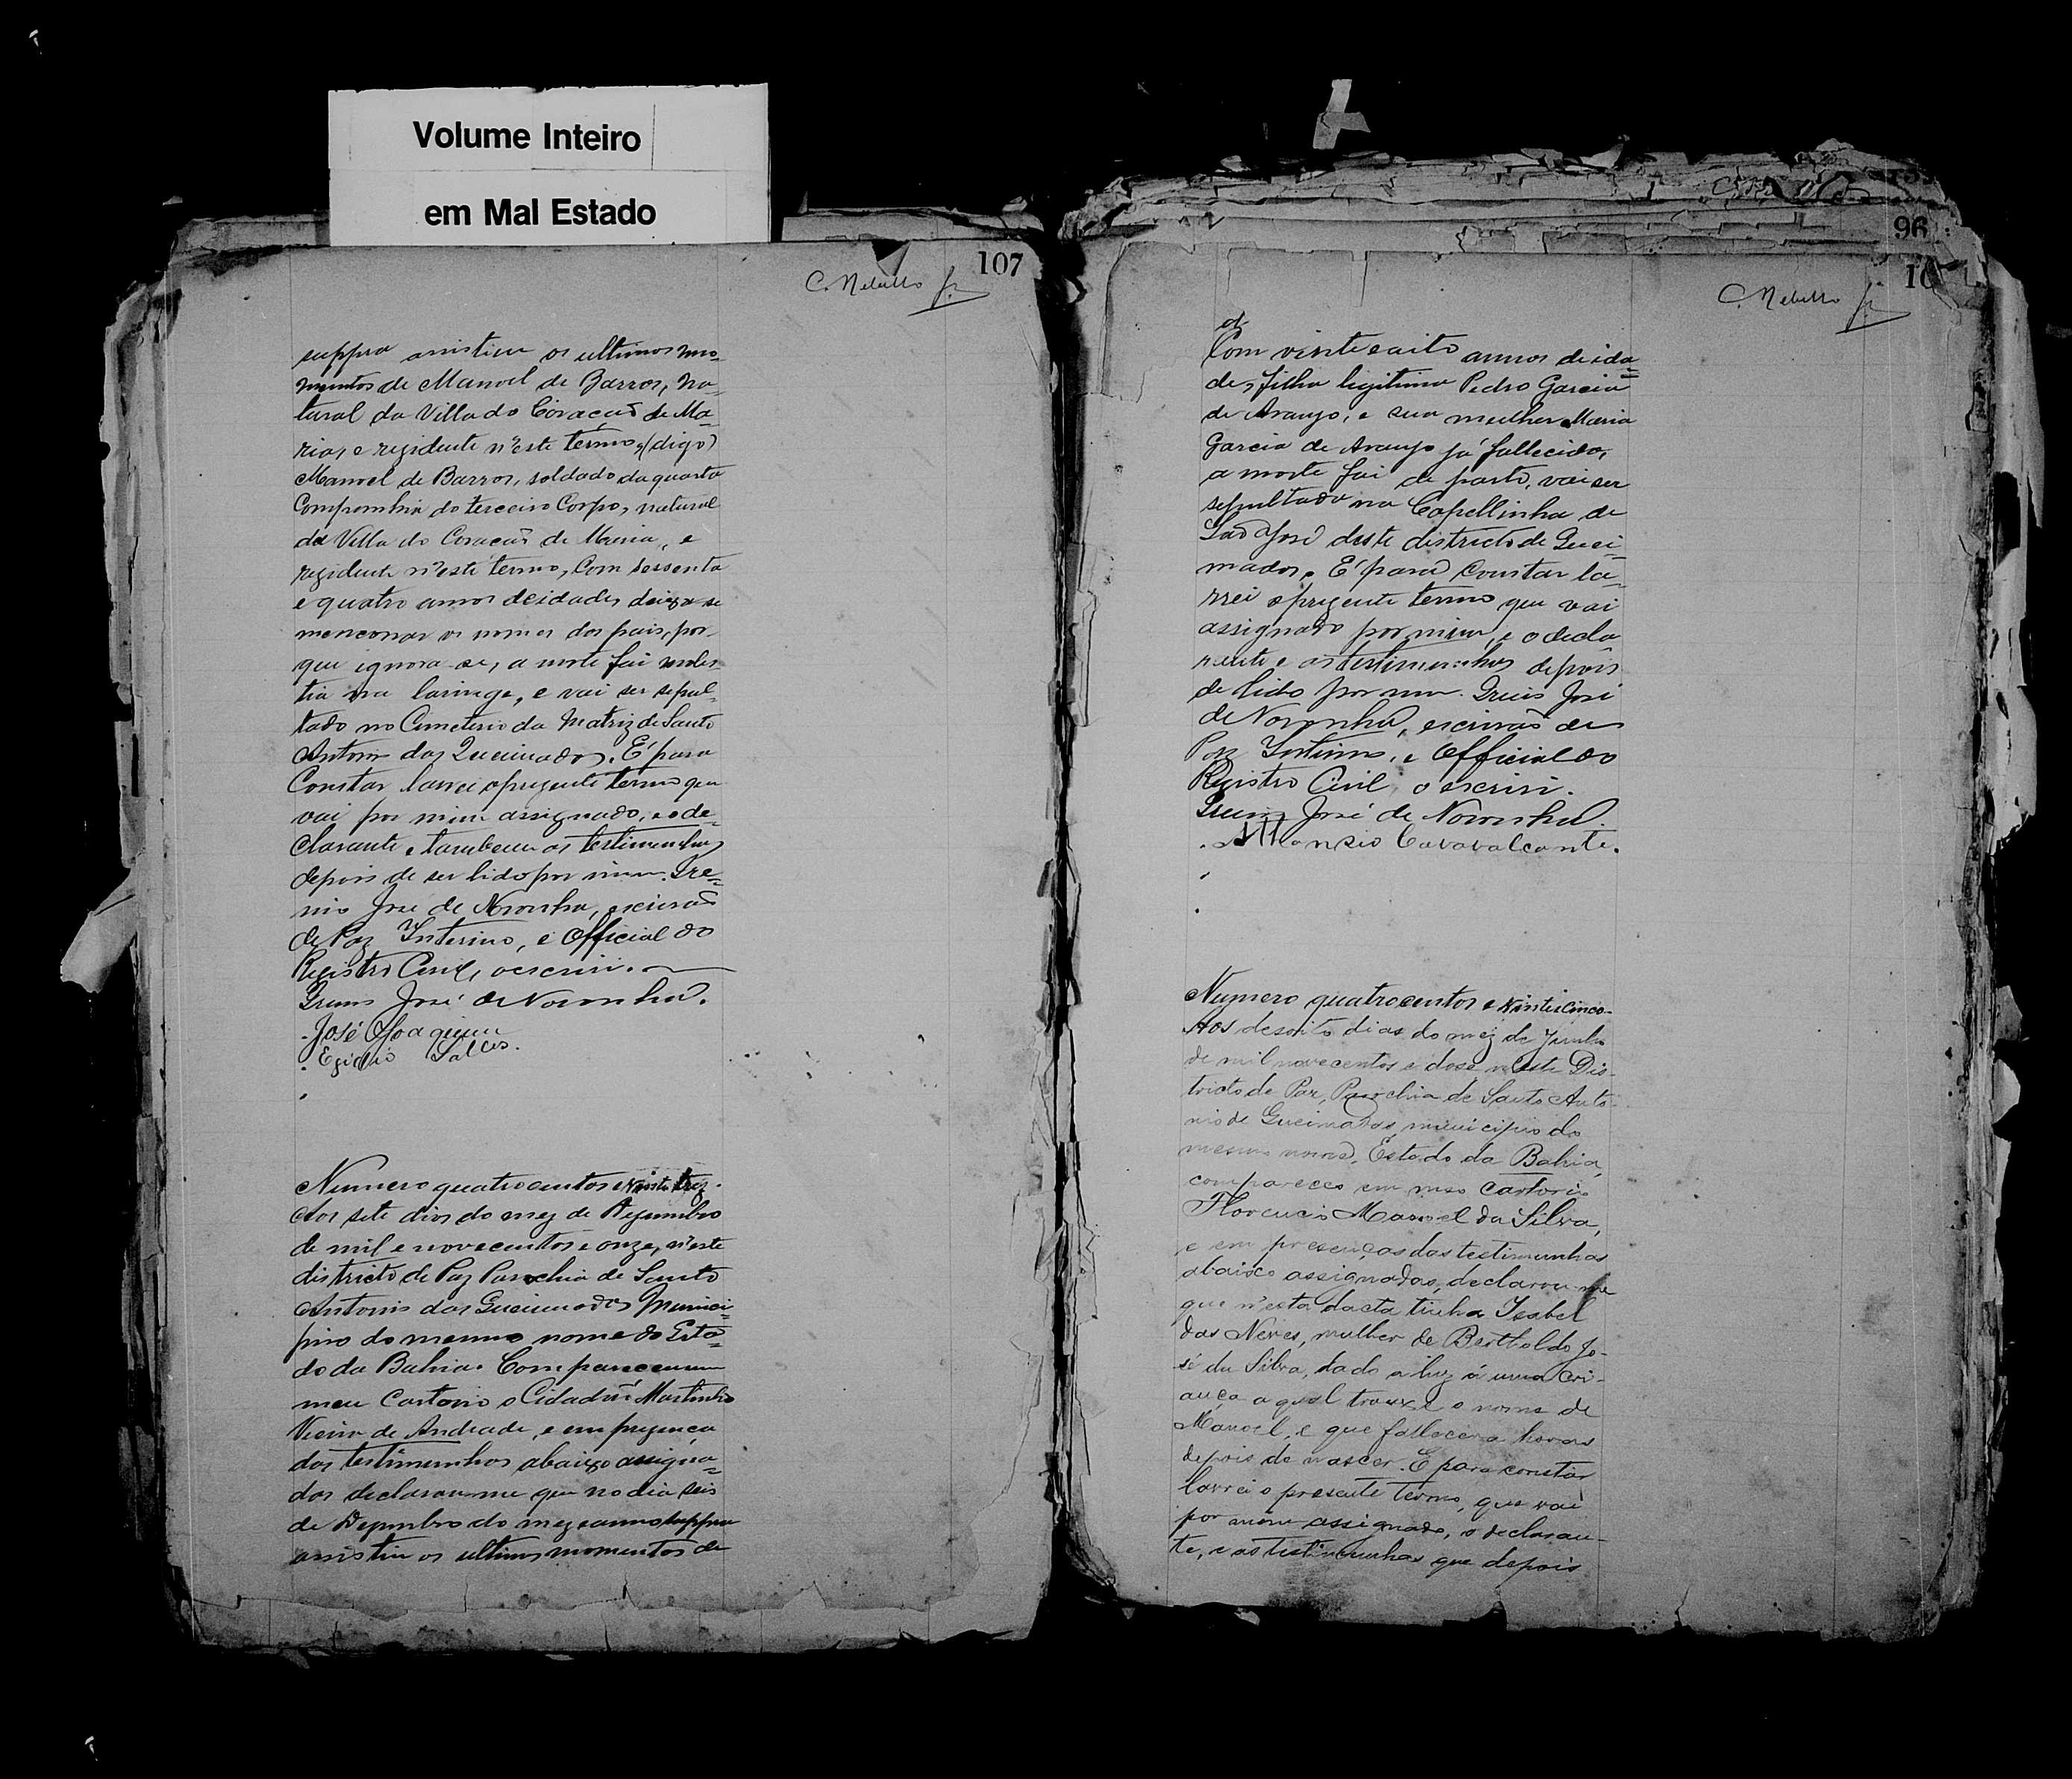 Volume Inteiro
em Mal Estado
107
suppra assistiu os ultimos mo-
mentos de Manoel de Barros, na-
tural da Villa do Coração de Ma-
ria, e rezidente n'este termo, (digo)
Manoel de Barros, soldado da quarta
Compromhia do terceiro Corpo, natural
da Villa do Coração de Maria, e
rezidente n'este termo, Com sessenta
e quatro annos deidade, deixa-se
menconar os nomes dos pais, por-
que ignora-se, a morte foi moles-
tia na laringe, e vai ser sepul-
tado no Cimeterio da Matriz de Santo
Antonio das Queimados. E' para
Constar lavrei o prezente termo que
vai por mim assignado, e o de-
clarante e tambem as testimunhas
depois de ser lido por mim. Ire-
nio José de Noronha, escrivão
de Paz Interino, e Official do
Registro Civil, o escrivi.
Irenio José de Noronha.
José Joaquim
Egidio Salles.
Numero quatrocentos e vinte trez.
Aos sete dias do mez de Dezembro
de mil e novecentos e onze, n'este
districto de Paz Parochia de Santo
Antonio das Queimados Munici-
pio do mesmo nome do Esta-
do da Bahia. Compareceu em
meu Cartorio o Cidadão Martinho
Vieira de Andrade, e em prezença
das testimunhas abaixo assigna-
das declarou-me que no dia seis
de Dezembro do mez e anno suppra
assistiu os ultimos momentos de
96
10
Com vinte e oito annos de ida-
de, filha legitima Pedro Garcia
de Araujo, e sua mulher Maria
Garcia de Araujo já fallecida,
a morte foi de parto, vai ser
sepultada na Capellinha de
São José deste districto de Quei-
mados. E' para Constar la-
vrei o prezente termo que vai
assignado por mim, e o decla
rante e as testimunhas depois
de lido por mim. Irenio José
de Noronha, escrivão de
Paz Interino, e Official do
Registro Civil, o escrivi.
Irenio José de Noronha.
Cavavalcante.
Numero quatrocentos e vinte e cinco.
Aos desoito dias do mez de Junho
de mil novecentos e dose n'este Dis-
tricto de Paz, Parochia de Santo Anto-
nio de Queimados, municipio do
mesmo nome, Estado da Bahia,
compareceo em meo cartorio
Florencio Manoel da Silva,
e em presenças das testimunhas
abaixo assignadas, declarou-me
que n'esta dacta tinha Isabel
das Neves, mulher de Bertholdo Jo-
sé da Silva, dado a luz á uma cri-
ança a qual trouxe o nome de
Manoel, e que fallecera horas
depois de nascer. E para constar
lavrei o presente termo, que vai
por mim assignado, o declaran-
te, e as testimunhas que depois